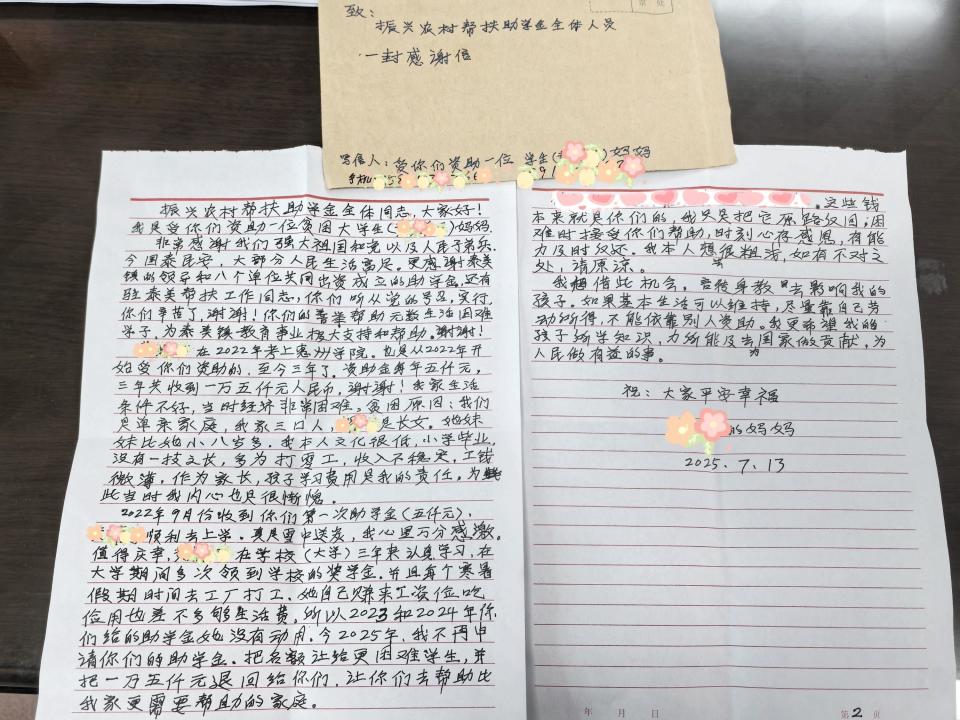 致：
振兴农村帮扶助学金全体人员
一封感谢信
写信人：受你们资助一位 学生( )妈妈
振兴农村帮扶助学金全体同志，大家好！
我是受你们资助一位贫困大学生( )妈妈.
非常感谢我们强大祖国和党以及人民子弟兵.
今国泰民安，大部分人民生活富足。更感谢泰美
镇的领导和八个单位共同出资成立的助学金，还有
驻泰美帮扶工作同志，你们听从党的号召，实行，
你们辛苦了，谢谢！你们的善举帮助无数生活困难
学子，为泰美镇教育事业极大支持和帮助。谢谢！
在2022年考上惠州学院。也是从2022年开
始受你们资助的，至今三年了。资助金每年五仟元，
三年共收到一万五仟元人民币，谢谢！我家生活
条件不好，当时经济非常困难。贫困原因：我们
是单亲家庭，我家三口人， 是长女。她妹
妹比她小八岁多。我本人文化很低，小学毕业，
没有一技之长，多为打零工，收入不稳定，工钱
微薄，作为家长，孩子学习费用是我的责任。为
此当时我内心也是很惭愧。
2022年9月份收到你们第一次助学金(五仟元)，
顺利去上学。真是雪中送炭，我心里万分感激。
值得庆幸， 在学校(大学)三年来认真学习，在
大学期间多次领到学校的奖学金。并且每个寒暑
假期时间去工厂打工。她自己赚来工资位吃
住用也差不多够生活费，所以2023和2024年你
们给的助学金她没有动用。今2025年，我不再申
请你们的助学金。把名额让给更困难学生，并
把一万五仟元退回给你们，让你们去帮助比
我家更需要帮助的家庭。
这些钱
本来就是你们的，我只是把它原路返回；困
难时接受你们帮助，时刻心存感恩，有能
力及时归还。我本人想很粗浅，如有不对之
处，请原谅。
我想借此机会。言传身教去影响我的
孩子。如果基本生活可以维持，尽量靠自己劳
动所得，不能依靠别人资助。我更希望我的
孩子所学知识，力所能及去国家做贡献，为
为
人民做有益的事。
祝：大家平安幸福
的妈妈
2025.7.13
年 月 日
第2页